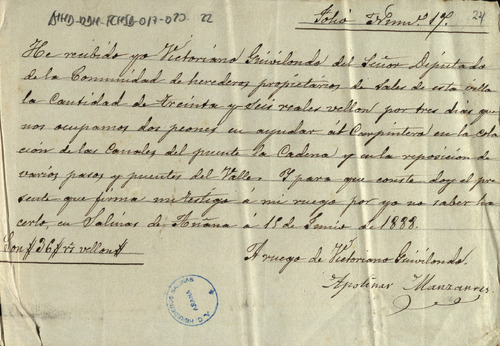 AHHD-DBH-FCHSB-017-020 22
24
Folio Num.º 17.
He recibido yo Victoriano Guivilondo del Señor Diputado
de la Comunidad de herederos propietarios de Sales de esta villa
la Cantidad de treinta y seis reales vellon por tres dias que
nos ocupamos dos peones en ayudar al Carpintero en la colo
cación de las Canales del puente la Cadena y en la reposición de
varios pasos y puentes del Valle. Y para que conste doy el pre
sente que firma un testigo á mi ruego por yo no saber ha
cerlo, en Salinas de Añana á 15 de Junio de 1888.
Son # 36 # rs vellon #
A ruego de Victoriano Guivilondo.
Apolinar Manzanos
AÑANA